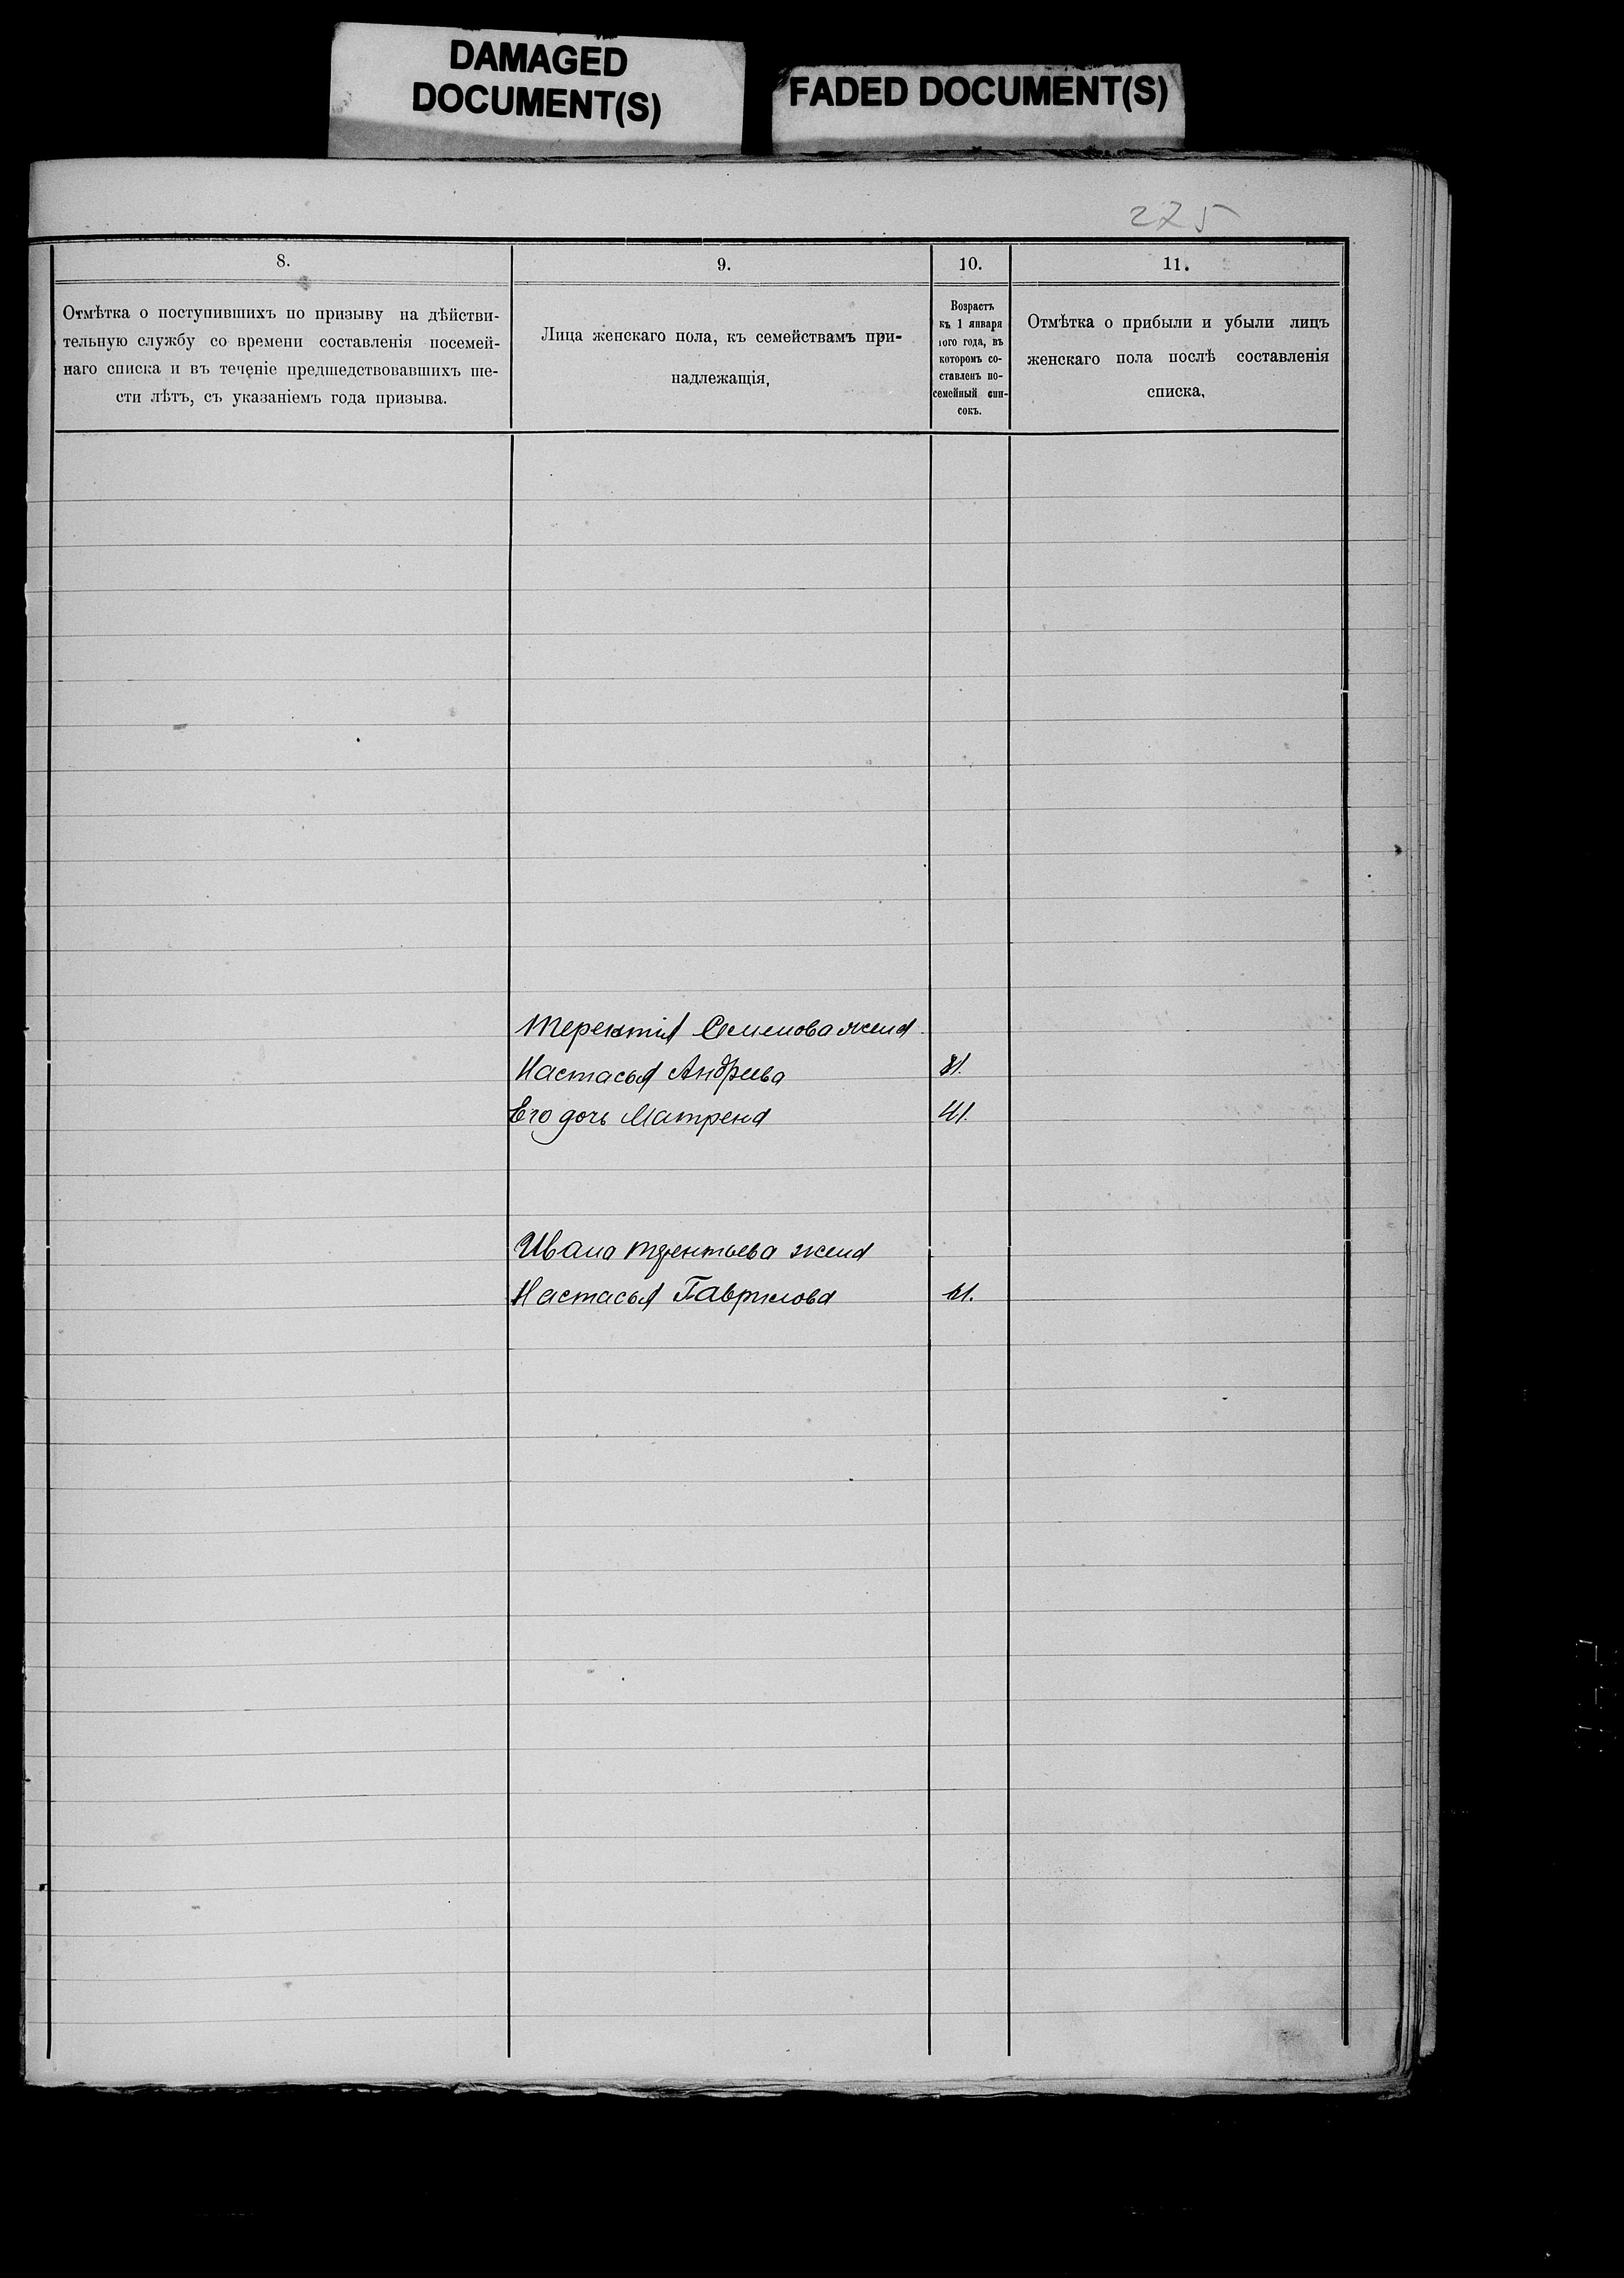 DAMAGED
DOCUMENT(S)
FADED DOCUMENT(S)
275
8.
9.
10.
11.
Отмѣтка о поступившихъ по призыву на дѣйстви-
тельную службу со времени составленія посемей-
наго списка и въ теченіе предшедствовавшихъ ше-
сти лѣтъ, съ указаніемъ года призыва.
Лица женскаго пола, къ семействамъ при-
надлежащія,
Возрастъ
къ 1 января
того года, въ
которомъ со-
ставленъ по-
семейный спи-
сокъ.
Отмѣтка о прибыли и убыли лицъ
женскаго пола послѣ составленія
списка,
Терентія Семенова жена
Настасья Андреева
Его дочь Матрена 41.
Ивана Терентьева жена
Настасья Гаврилова